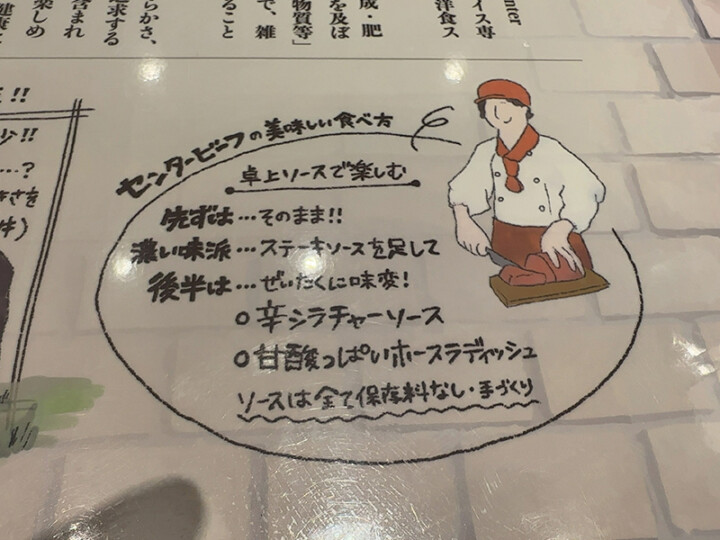 nter
イス専
洋食ス
成・肥
を及ぼ
物質等」
で、雑
ること
らかさ、
追求する
含まれ
楽しめ
!!
少!!
…?
きさを
牛)
センタービーフの美味しい食べ方
卓上ソースで楽しむ
先ずは…そのまま!!
濃い味派…ステーキソースを足して
後半は…ぜいたくに味変!
○辛シラチャーソース
○甘酸っぱいホースラディッシュ
ソースは全て保存料なし・手づくり